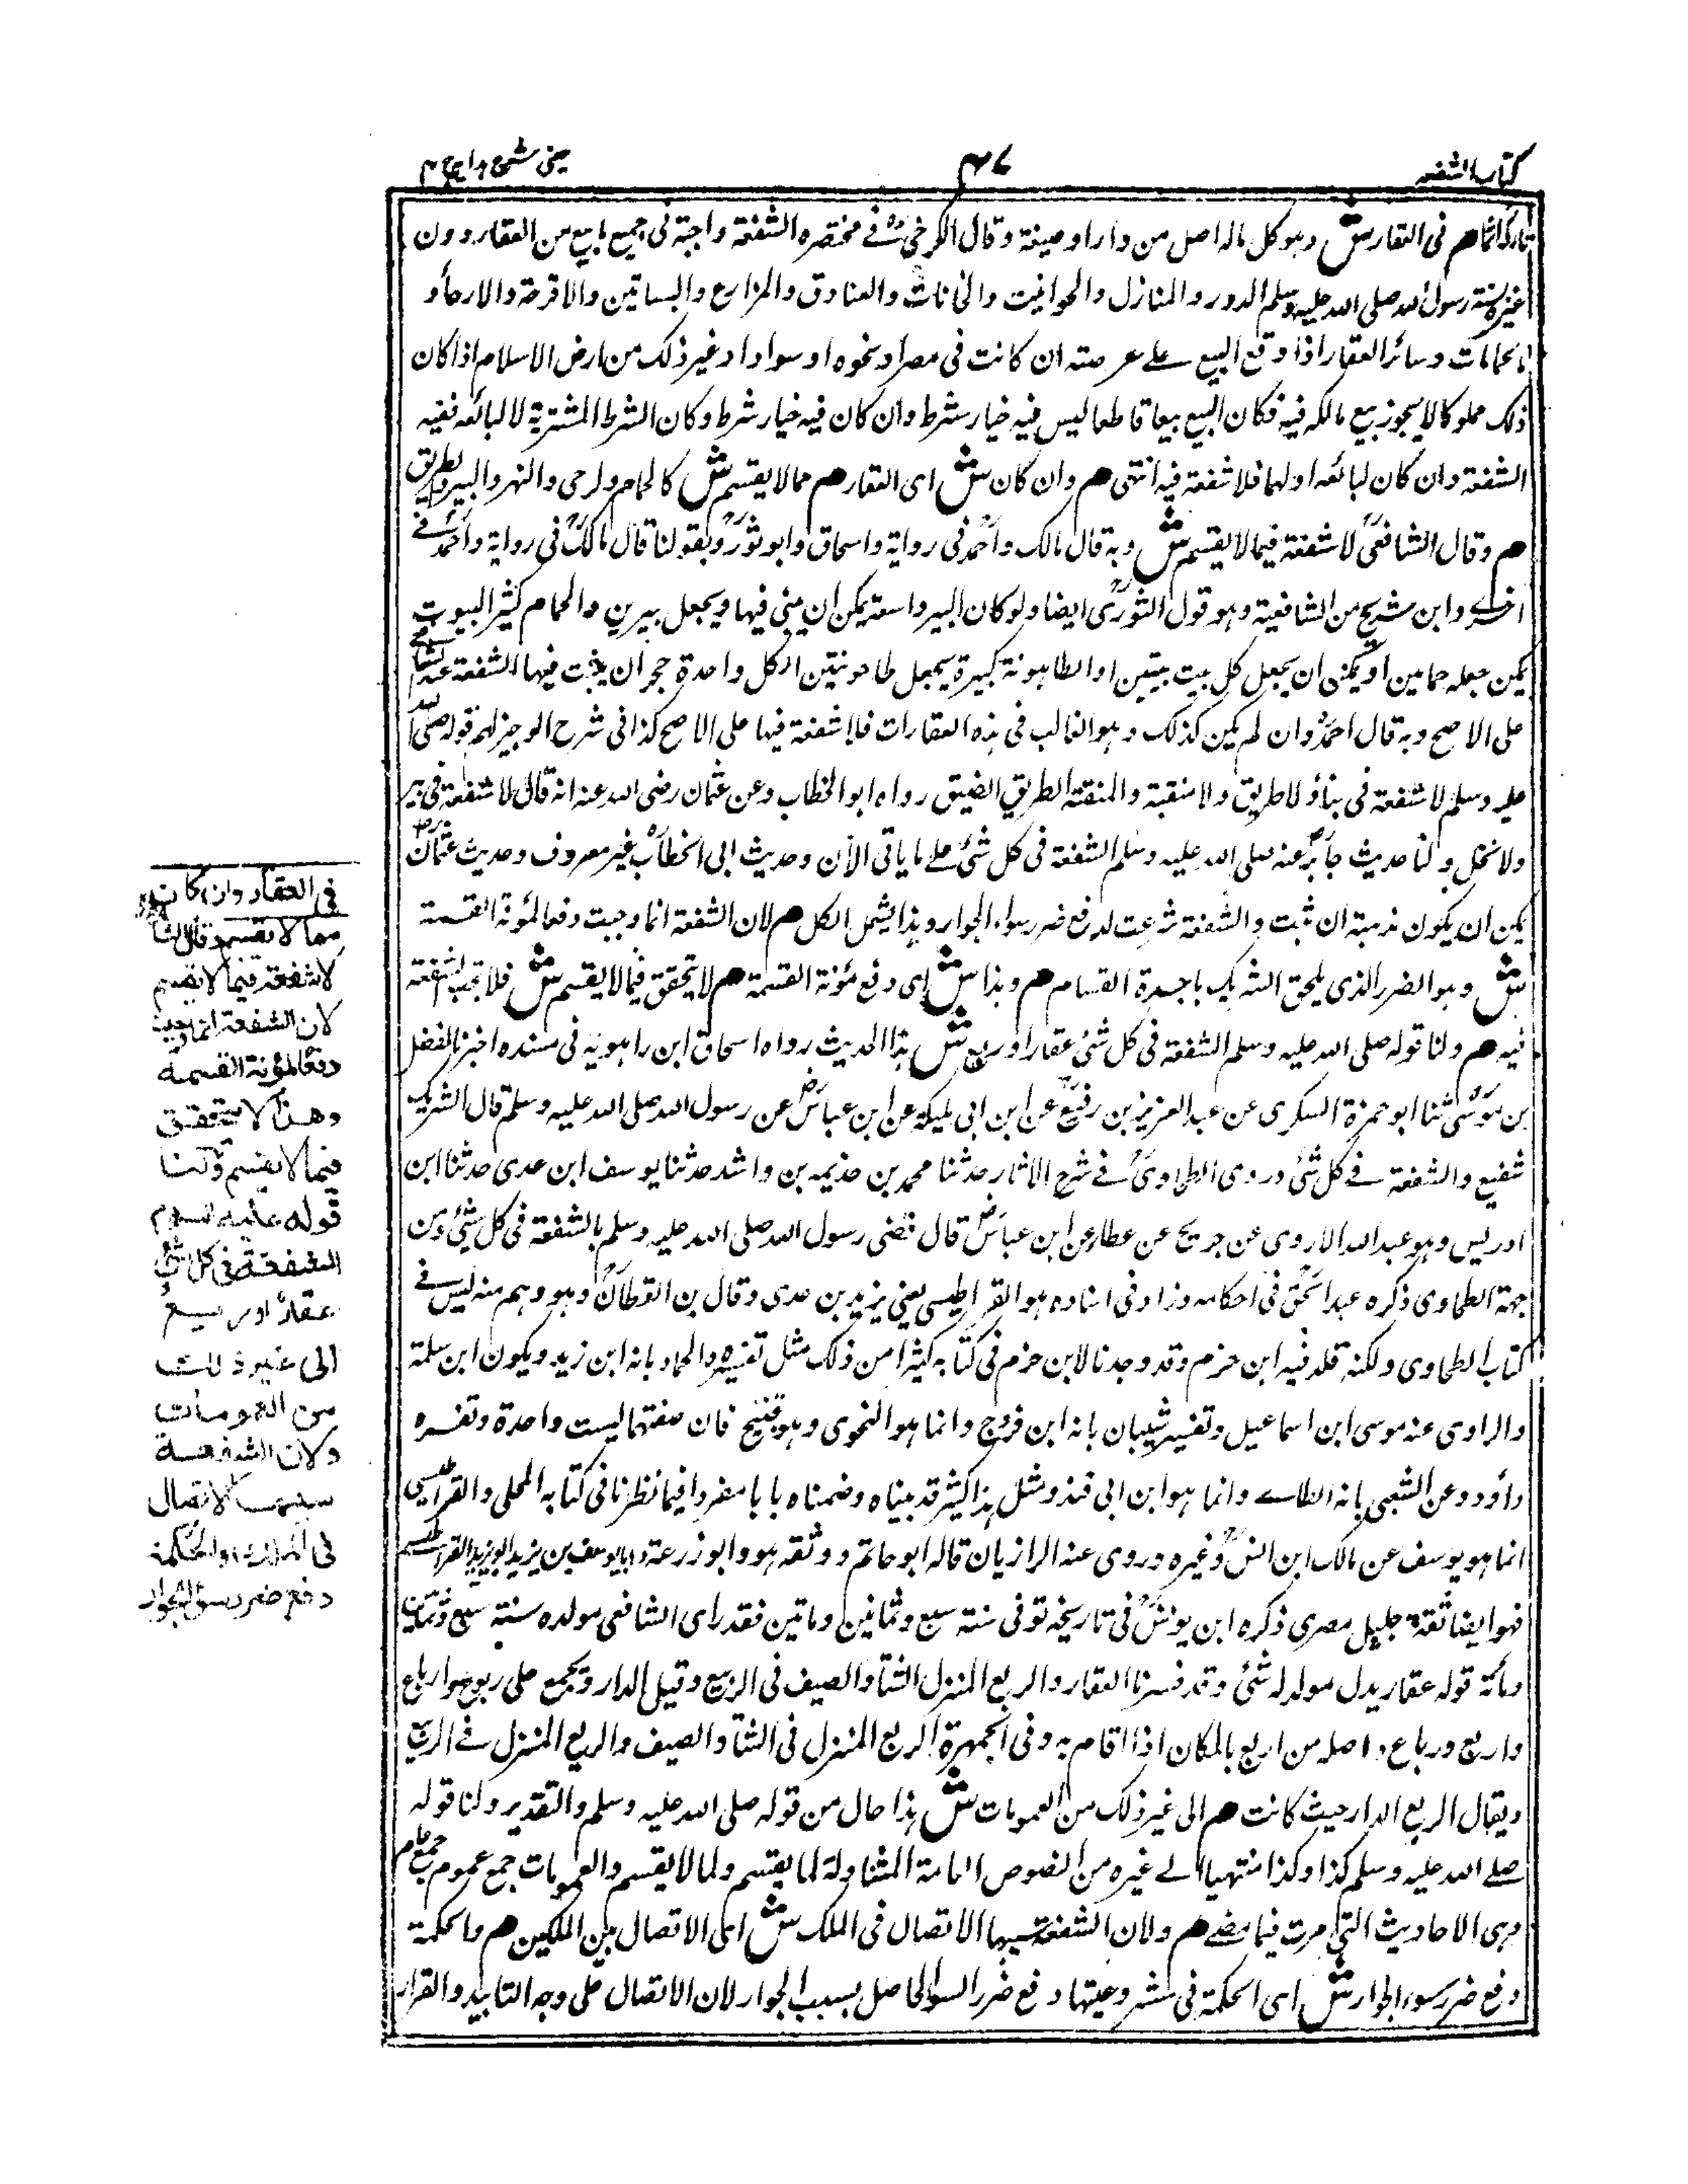 كتاب الشفعه
٤٦
عینی شرح هدایه ج ٣
م فی العقار ش وهو كل ماله اصل من دار او ضیعة وقال الكرخیؒ فے مختصره الشفعة واجبة فی جمیع ما بیع من العقار دون
غیره بسنة رسول الله صلی الله علیه وسلم الدور والمنازل والحوانیت والخانات والفنادق والمزارع والبساتین والاقرحة والارحأ و
الحمامات وسائر العقار اذا وقع البیع علے عرصته ان كانت فی مصر او نحوه او سواد او غیر ذلك من ارض الاسلام اذا كان
ذلك مملوكا لا یجوز بیع مالكه فیه فكان البیع بیعا قاطعا لیس فیه خیار شرط وان كان فیه خیار شرط وكان الشرط المشتریة لا لبائعه ففیه
الشفعة وان كان لبائعه او لهما فلا شفعة فیه انتهی م وان كان ش ای العقار م مما لا یقسم ش كالحمام والرحی والنهر والبیر والطریق
م وقال الشافعیؒ لا شفعة فیما لا یقسم ش وبه قال مالك واحمدؒ فی روایة واسحاق وابو ثورؒ وبقولنا قال مالكؒ فی روایة واحمدؒ فے
اخرے وابن شریح من الشافعیة وهو قول الثوریؒ ایضا ولو كان البیر واسعة یمكن ان یبنی فیها ویجعل بیرین والحمام كثیر البیوت
یمكن جعله حمامین او یمكن ان یجعل كل بیت بیتین او الطاحونة كبیرة یجعل طاحونتین لكل واحدة حجر ان یثبت فیها الشفعة عند الشافعی
علی الاصح وبه قال احمدؒ وان لم یكن كذلك وهو الغالب فی هذه العقارات فلا شفعة فیها علی الاصح كذا فی شرح الوجیز لهم قوله صلی الله
علیه وسلم لا شفعة فی بنأ ولا طریق ولا منقبة والمنقبة الطریق الضیق رواه ابو الخطاب وعن عثمان رضی الله عنه انه قال لا شفعة فی بیر
ولا نخل ولنا حدیث جابرؓ عنه صلی الله علیه وسلم الشفعة فی كل شئ علے ما یاتی الآن وحدیث ابی الخطابؒ غیر معروف وحدیث عثمانؓ
یمكن ان یكون مذهبة ان ثبت والشفعة شرعت لدفع ضرر سواء الجوار وهذا یشمل الكل م لان الشفعة انما وجبت دفعا لمؤنة القسمة
ش وهو الضرر الذی یلحق الشریك باجرة القسام م وهذا ش ای دفع مؤنة القسمة م لا یتحقق فیما لا یقسم ش فلا تجب الشفعة
فیه م ولنا قوله صلی الله علیه وسلم الشفعة فی كل شئ عقار او ربع ش هذا الحدیث رواه اسحاق ابن راهویه فی مسنده اخبرنا الفضل
بن موسیؒ ثنا ابو حمزة السكری عن عبد العزیز بن رفیعؒ عن ابن ابی ملیكة عن ابن عباسؓ عن رسول الله صلی الله علیه وسلم قال الشریك
شفیع والشفعة فے كل شئ وروی الطحاویؒ فے شرح الاثار حدثنا محمد بن خذیمه بن واشد حدثنا یوسف ابن عدی حدثنا ابن
ادریس وهو عبد الله الاروی عن جریح عن عطار عن ابن عباسؓ قال قضی رسول الله صلی الله علیه وسلم بالشفعة فی كل شئ ومن
جهة الطحاوی ذكره عبد الحقؒ فی احكامه وزاد فی اسناده هو القراطیسی یعنی یزید بن عدی وقال بن القطانؒ وهو وهم منه لیس فے
كتاب الطحاوی ولكنه قلد فیه ابن حزم وقد وجدنا لابن حزم فی كتابه كثیرا من ذلك مثل تفسیره والحماد بانه ابن زید ویكون ابن سلمة
والراوی عنه موسی ابن اسماعیل وتفسیر شیبان بانه ابن فروج وانما هو النحوی وهو قبیح فان صفتهما لیست واحدة وتفسره
داؤد وعن الشعبی بانه الطاے وانما هو ابن ابی هند ومثل هذا كثیر قد بیناه وضمناه بابا مفردا فیما نظرنا فی كتابه المحلی والقراطیسی
انما هو یوسف عن مالك ابن انسؒ وغیره وروی عنه الرازیان قاله ابو حاتم ووثقه هو وابو زرعة واما یوسف بن یزید ابو یزید القراطیسی
فهو ایضا ثقة جلیل مصری ذكره ابن یونسؒ فی تاریخه توفی سنة سبع وثمانین وماتین فقد رای الشافعی مولده سنة سبع وثمانین
ومأئة قوله عقار بدل مولد له شئ وقد فسرنا العقار والربع المنزل الشتأ والصیف فی الربیع وقیل الدار ویجمع علی ربوع وارباع
واربع ورباع واصله من اربع بالمكان اذا اقام به وفی الجمهرة الربع المنزل فی الشتأ والصیف والربع المنزل فے الربیع
ویقال الربع الدار حیث كانت م الی غیر ذلك من العمومات ش هذا حال من قوله صلی الله علیه وسلم والتقدیر ولنا قوله
صلے الله علیه وسلم كذا وكذا منتهیا الے غیره من النصوص العامة المتناولة لما یقسم ولما لا یقسم والعمومات جمع عموم جمع عام
وهی الاحادیث التی مرت فیما مضے م ولان الشفعة سببها الاتصال فی الملك ش ای الاتصال بین الملكین م والحكمة
دفع ضرر سوء الجوار ش ای الحكمة فی مشروعیتها دفع ضرر السوأ الحاصل بسبب الجوار لان الاتصال علی وجه التابید والقرار
فی العقار وان كان
مما لا یقسم وقال الشافعی
لا شفعة فیما لا یقسم
لان الشفعة انما وجبت
دفعًا لمؤنة القسمة
وهذا لا یتحقق
فیما لا یقسم ولنا
قوله علیه السلام
الشفعة فی كل شئ
عقار او ربع
الی غیر ذلك
من العمومات
ولان الشفعة
سببها الاتصال
فی الملك والحكمة
دفع ضرر سوء الجوار